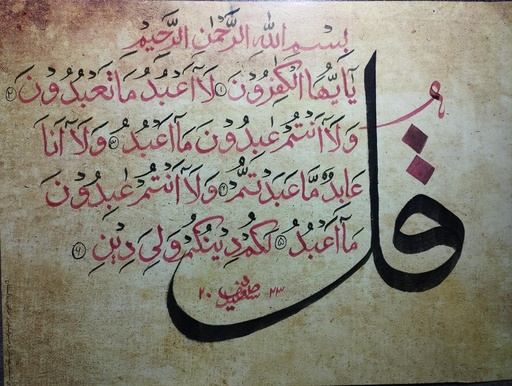 بِسْمِ اللهِ الرَّحْمٰنِ الرَّحِيْمِ
قُل
يٰٓاَيُّهَا الْكٰفِرُوْنَ ١ لَآ اَعْبُدُ مَا تَعْبُدُوْنَ ٢
وَلَآ اَنْتُمْ عٰبِدُوْنَ مَآ اَعْبُدُ ٣ وَلَآ اَنَا
عَابِدٌ مَّا عَبَدْتُّمْ ٤ وَلَآ اَنْتُمْ عٰبِدُوْنَ
مَآ اَعْبُدُ ٥ لَكُمْ دِيْنُكُمْ وَلِيَ دِيْنِ ٦
٢٠ ٢٣